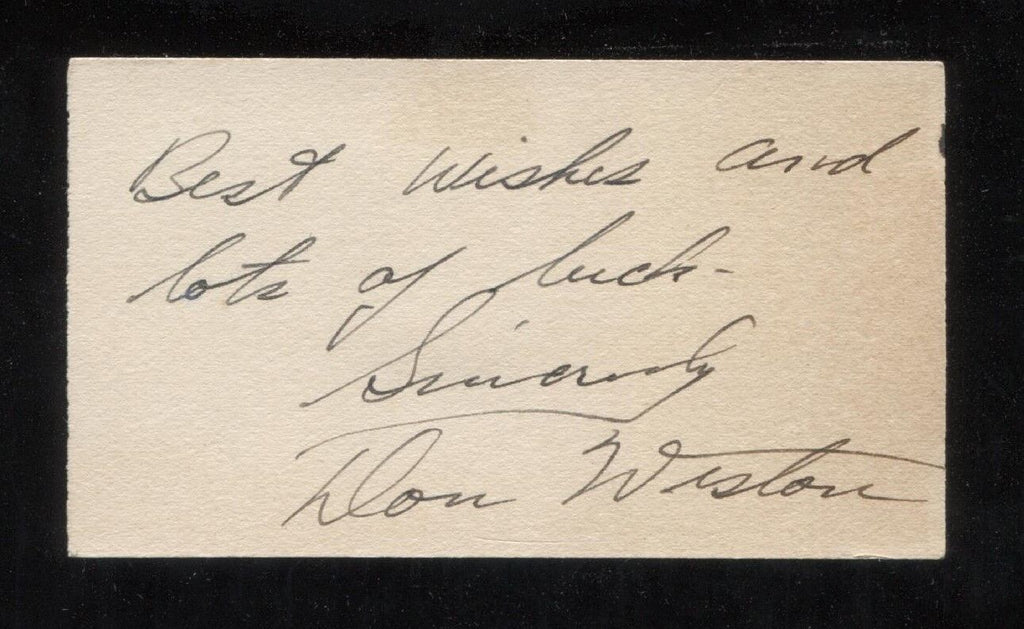 Best Wishes and
lots of luck-
Sincerely
Don Weston